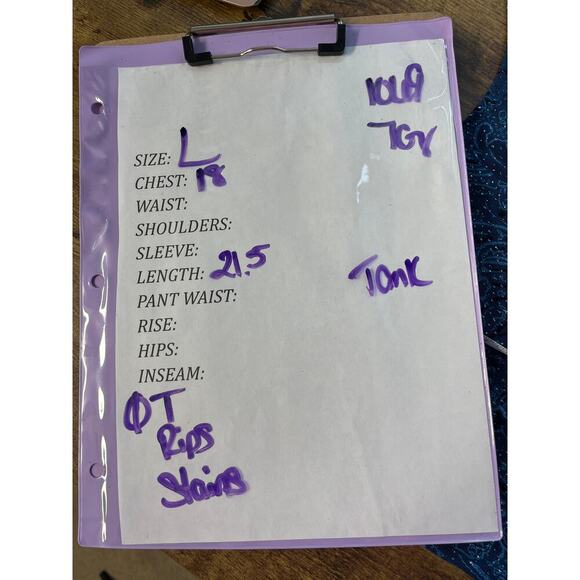 SIZE: L
CHEST: 18
WAIST:
SHOULDERS:
SLEEVE:
LENGTH: 21.5
PANT WAIST:
RISE:
HIPS:
INSEAM:
Tank
Ø T
Rips
Stains